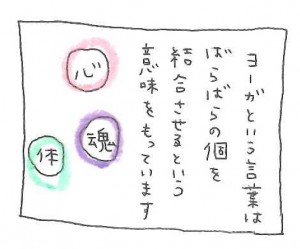 ヨーガという言葉は
ばらばらの個を
結合させるという
意味をもっています
心
魂
体